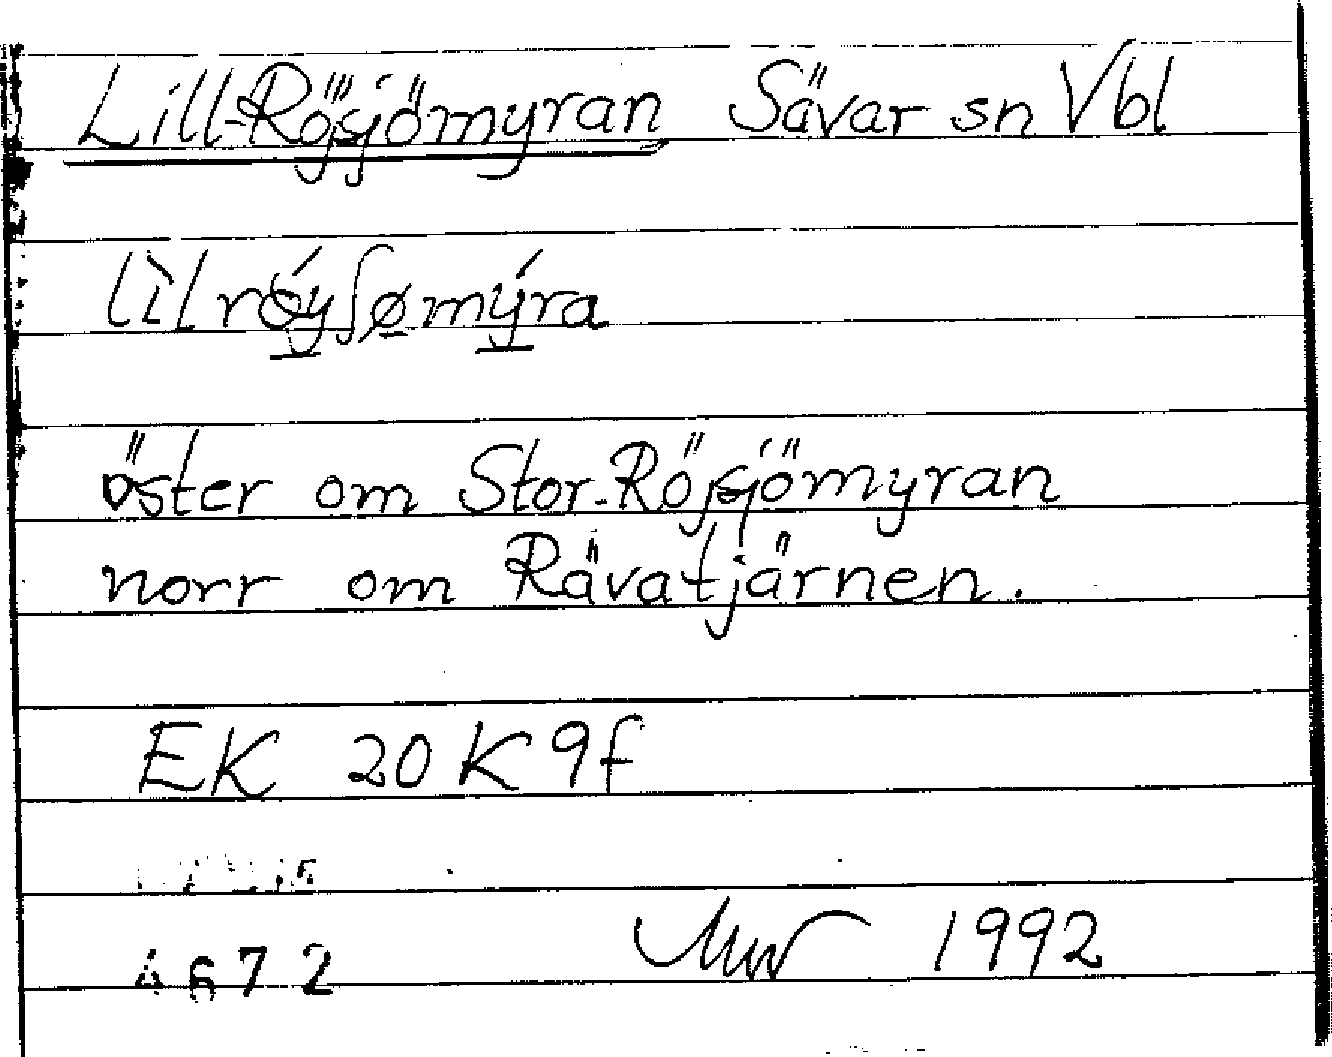 Lill-Röjsjömyran Sävar sn Vbl
lìlrǿyʃømýra
öster om Stor-Röjsjömyran
norr om Rävatjärnen.
EK 20K9f
4672 1992